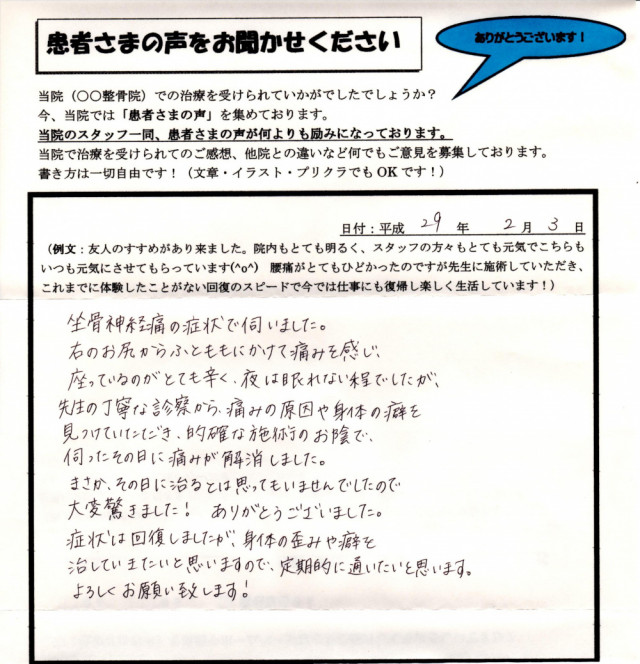 患者さまの声をお聞かせください
ありがとうございます！
当院（〇〇整骨院）での治療を受けられていかがでしたでしょうか？
今、当院では「患者さまの声」を集めております。
当院のスタッフ一同、患者さまの声が何よりも励みになっております。
当院で治療を受けられてのご感想、他院との違いなど何でもご意見を募集しております。
書き方は一切自由です！（文章・イラスト・プリクラでもOKです！）
日付：平成 29 年 2 月 3 日
（例文：友人のすすめがあり来ました。院内もとても明るく、スタッフの方々もとても元気でこちらも
いつも元気にさせてもらっています(^o^) 腰痛がとてもひどかったのですが先生に施術していただき、
これまでに体験したことがない回復のスピードで今では仕事にも復帰し楽しく生活しています！）
坐骨神経痛の症状で伺いました。
右のお尻からふとももにかけて痛みを感じ、
座っているのがとても辛く、夜は眠れない程でしたが、
先生の丁寧な診察から、痛みの原因や身体の癖を
見つけていただき、的確な施術のお陰で、
伺ったその日に痛みが解消しました。
まさか、その日に治るとは思ってもいませんでしたので
大変驚きました！ ありがとうございました。
症状は回復しましたが、身体の歪みや癖を
治していきたいと思いますので、定期的に通いたいと思います。
よろしくお願い致します！